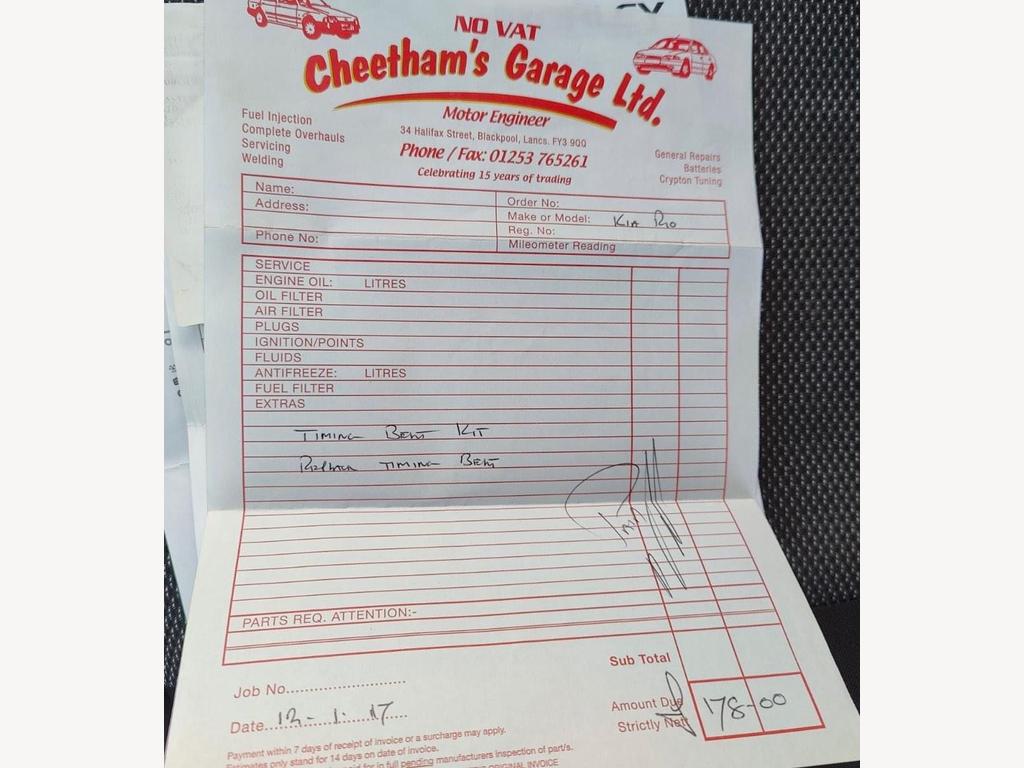 NO VAT
Cheetham's Garage Ltd.
Motor Engineer
34 Halifax Street, Blackpool, Lancs. FY3 9QQ
Phone / Fax: 01253 765261
Celebrating 15 years of trading
Fuel Injection
Complete Overhauls
Servicing
Welding
General Repairs
Batteries
Crypton Tuning
Name:
Address:
Phone No:
Order No:
Make or Model: KIA RIO
Reg. No:
Mileometer Reading
SERVICE
ENGINE OIL: LITRES
OIL FILTER
AIR FILTER
PLUGS
IGNITION/POINTS
FLUIDS
ANTIFREEZE: LITRES
FUEL FILTER
EXTRAS
TIMING BELT KIT
TIMING BELT
PARTS REQ. ATTENTION:-
Sub Total
Job No..............................
Amount Due
Strictly Nett
178-00
Date...12-1-17....
Payment within 7 days of receipt of invoice or a surcharge may apply.
Estimates only stand for 14 days on date of invoice.
for in full pending manufacturers inspection of part/s.
ORIGINAL INVOICE